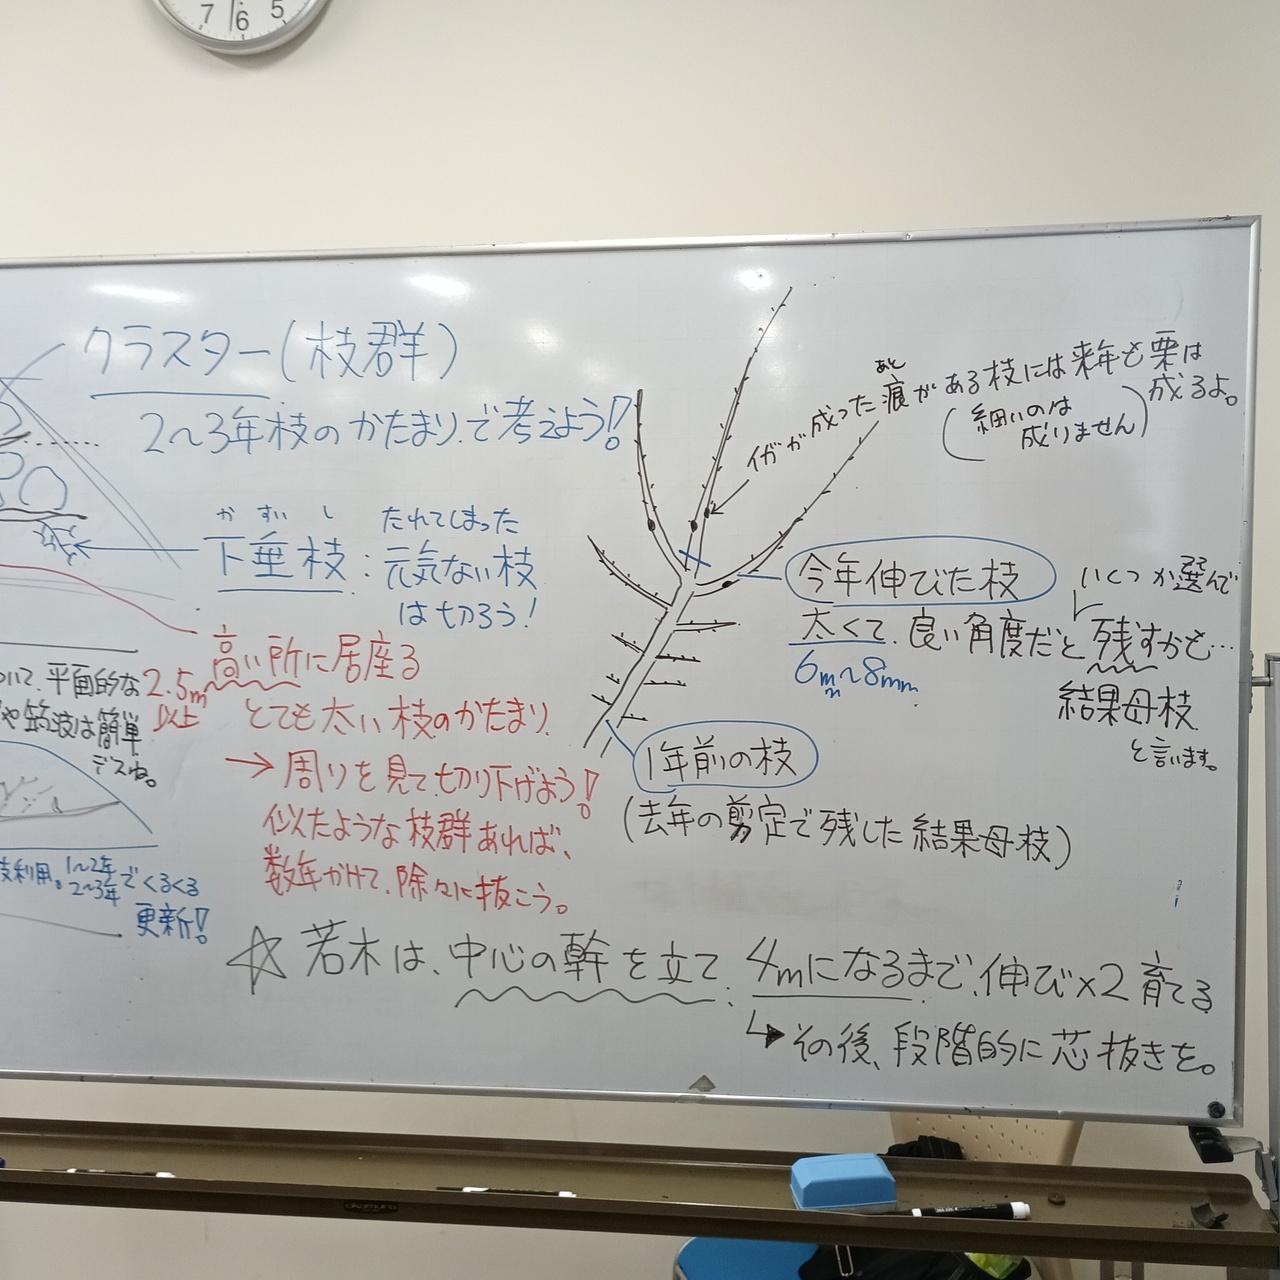 7 6 5
クラスター(枝群)
2〜3年枝のかたまりで考えよう!
かすいし
下垂枝:たれてしまった
元気ない枝
は切ろう!
2.5m
以上
高い所に居座る
とても太い枝のかたまり
→周りを見て切り下げよう!
似たような枝群あれば、
数年かけて、除々に抜こう。
平面的な
は簡単
デスね。
枝利用。1〜2年
2〜3年
でくるくる
更新!
あと
イガが成った痕がある枝には来年も栗は
成るよ。
(細いのは
成りません)
今年伸びた枝
いくつか選んで
太くて、良い角度だと残すかも…
6mm〜8mm
結果母枝
と言います。
1年前の枝
(去年の剪定で残した結果母枝)
☆若木は、中心の幹を立て、4mになるまで、伸び×2育てる
↳その後、段階的に芯抜きを。